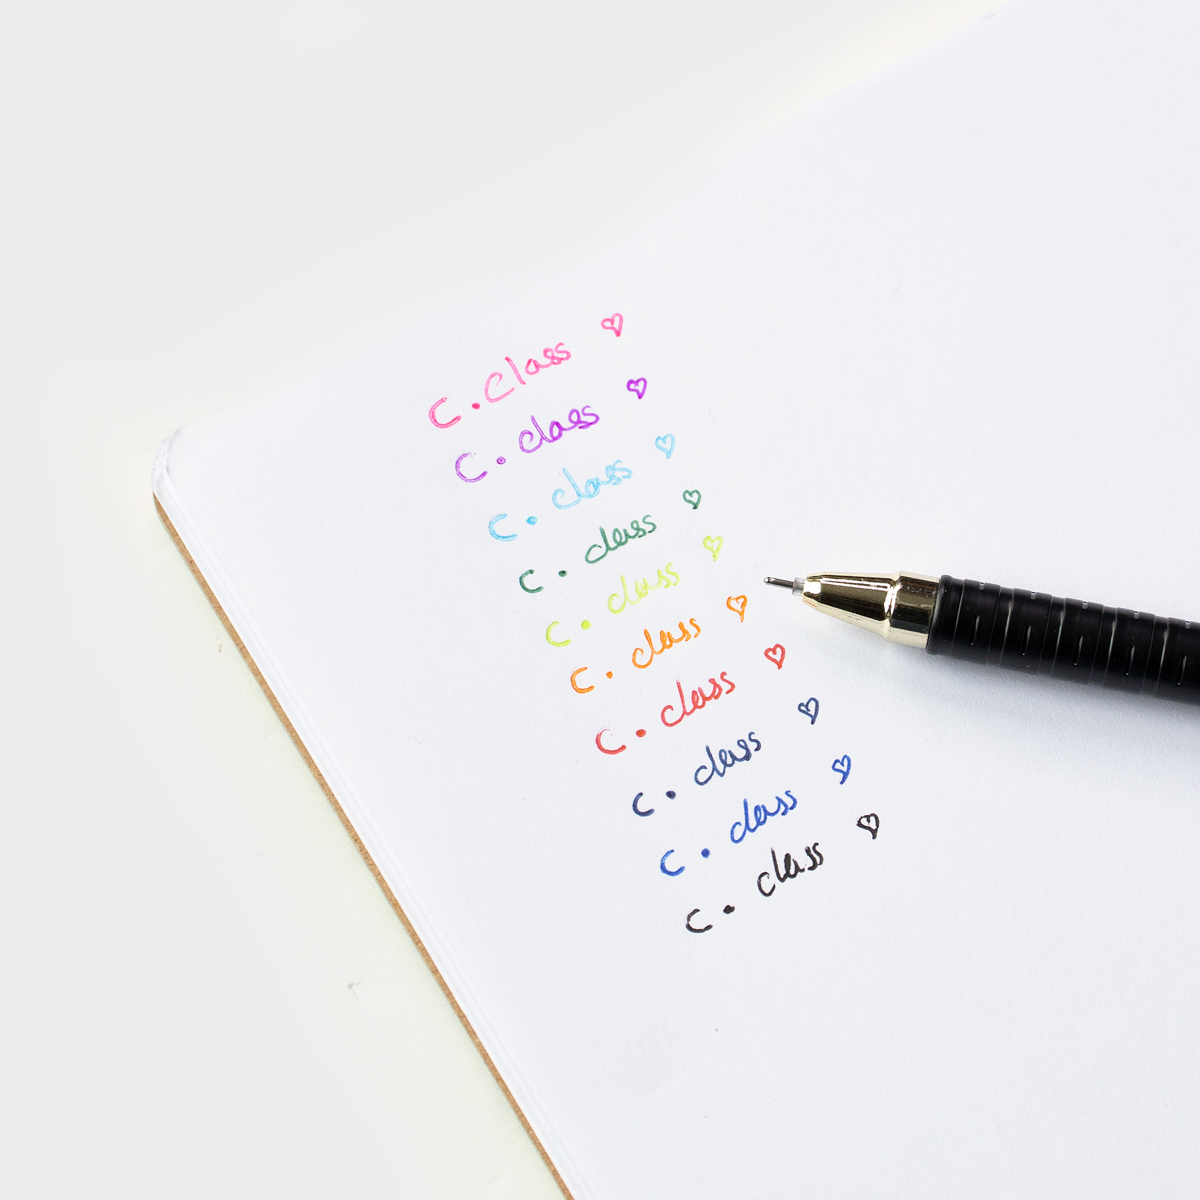 C. Class ♡
C. class ♡
C. class ♡
C. class ♡
C. class ♡
C. class ♡
C. class ♡
C. class ♡
C. class ♡
C. class ♡